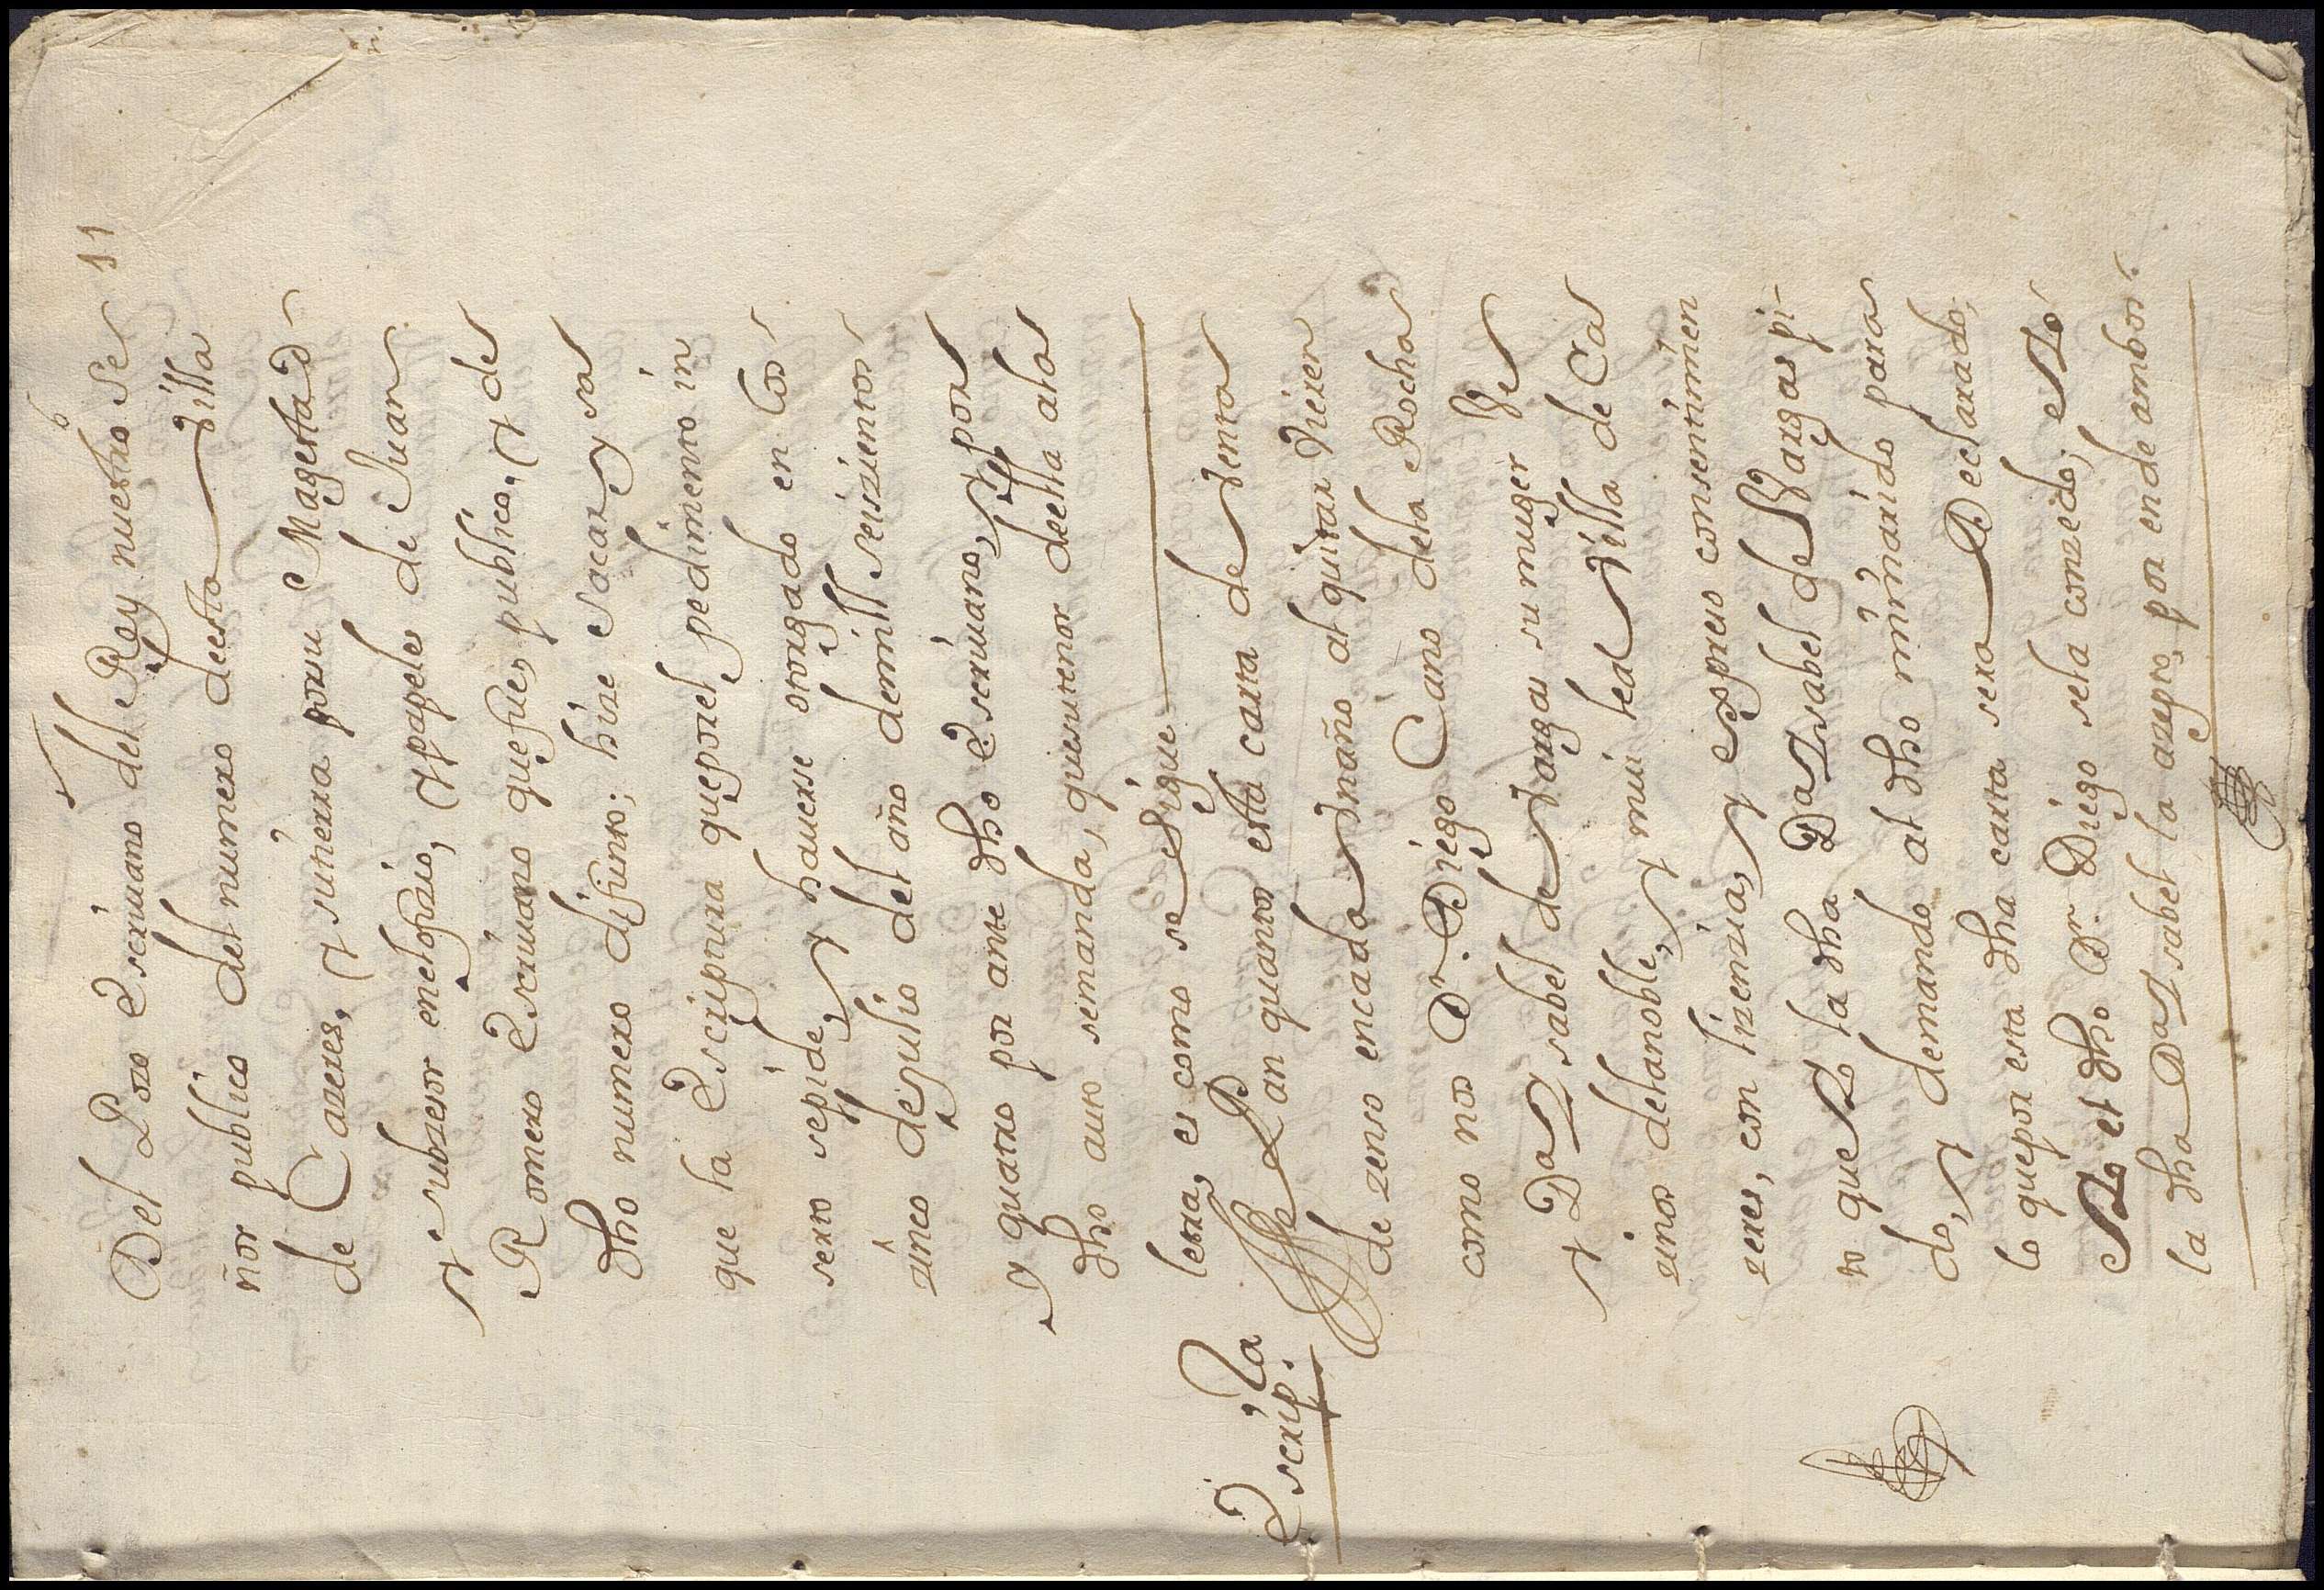 11
Del Pozo Escriuano del Rey nuestro Se
ñor publico del numero deesta Villa
de Cazeres, y sutierra porsu Magestad
y subzesor enelofizio, y papeles de Juan
Romero Escriuano quefue, publico, y de
dho numero difunto; hize sacar y sa
que la Escriptura queporel pedimento in
serto sepide, y hauerse otorgado en los
zinco dejulio del año demill seiszientos
y quatro por ante dho Escriuano, y por
dho auto semanda, quesutenor deella ala
letra, es como se sigue
La
Escrip.ª
Sepan quantos esta carta de Venta
de zenso encada Vnaño al quitar Vieren
como nos Dn. Diego Cano dela Rocha
y Da Ysabel de Vargas su muger Ve
zinos delanoble, y mui leal Villa de Ca
zeres, con lizenzia, y expreso consentimien
to que Yo la dha Da Ysabel de Vargas pi
do, y demando al dho mi marido para
lo quepor esta dha carta sera Declarado;
e Yo el dho Dn. Diego sela conzedo; e Yo
la dha Da Ysabel la azepto, por ende ambos